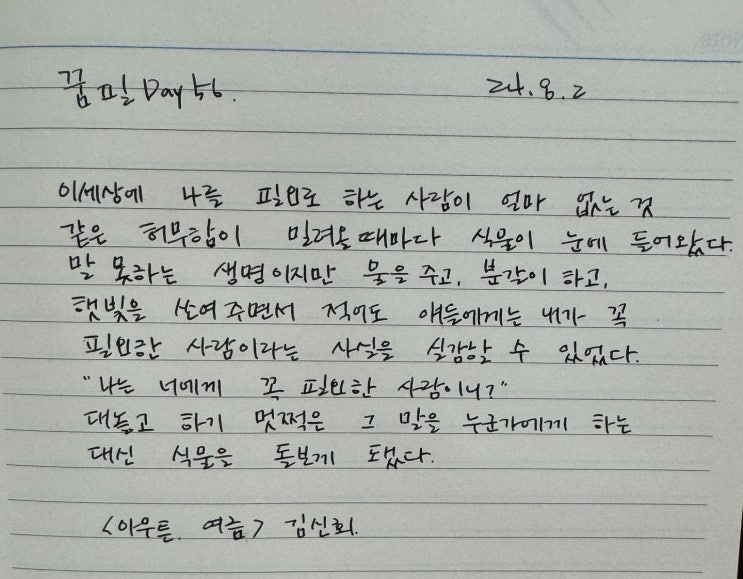 꿈필 Day 56. 24. 8. 2
이세상에 나를 필요로 하는 사람이 얼마 없는 것
같은 허무함이 밀려올 때마다 식물이 눈에 들어왔다.
말 못하는 생명이지만 물을 주고, 분갈이 하고,
햇빛을 쏘여 주면서 적어도 얘들에게는 내가 꼭
필요한 사람이라는 사실을 실감할 수 있었다.
"나는 너에게 꼭 필요한 사람이니?"
대놓고 하기 멋쩍은 그 말을 누군가에게 하는
대신 식물을 돌보게 됐다.
<아무튼, 여름> 김신회.